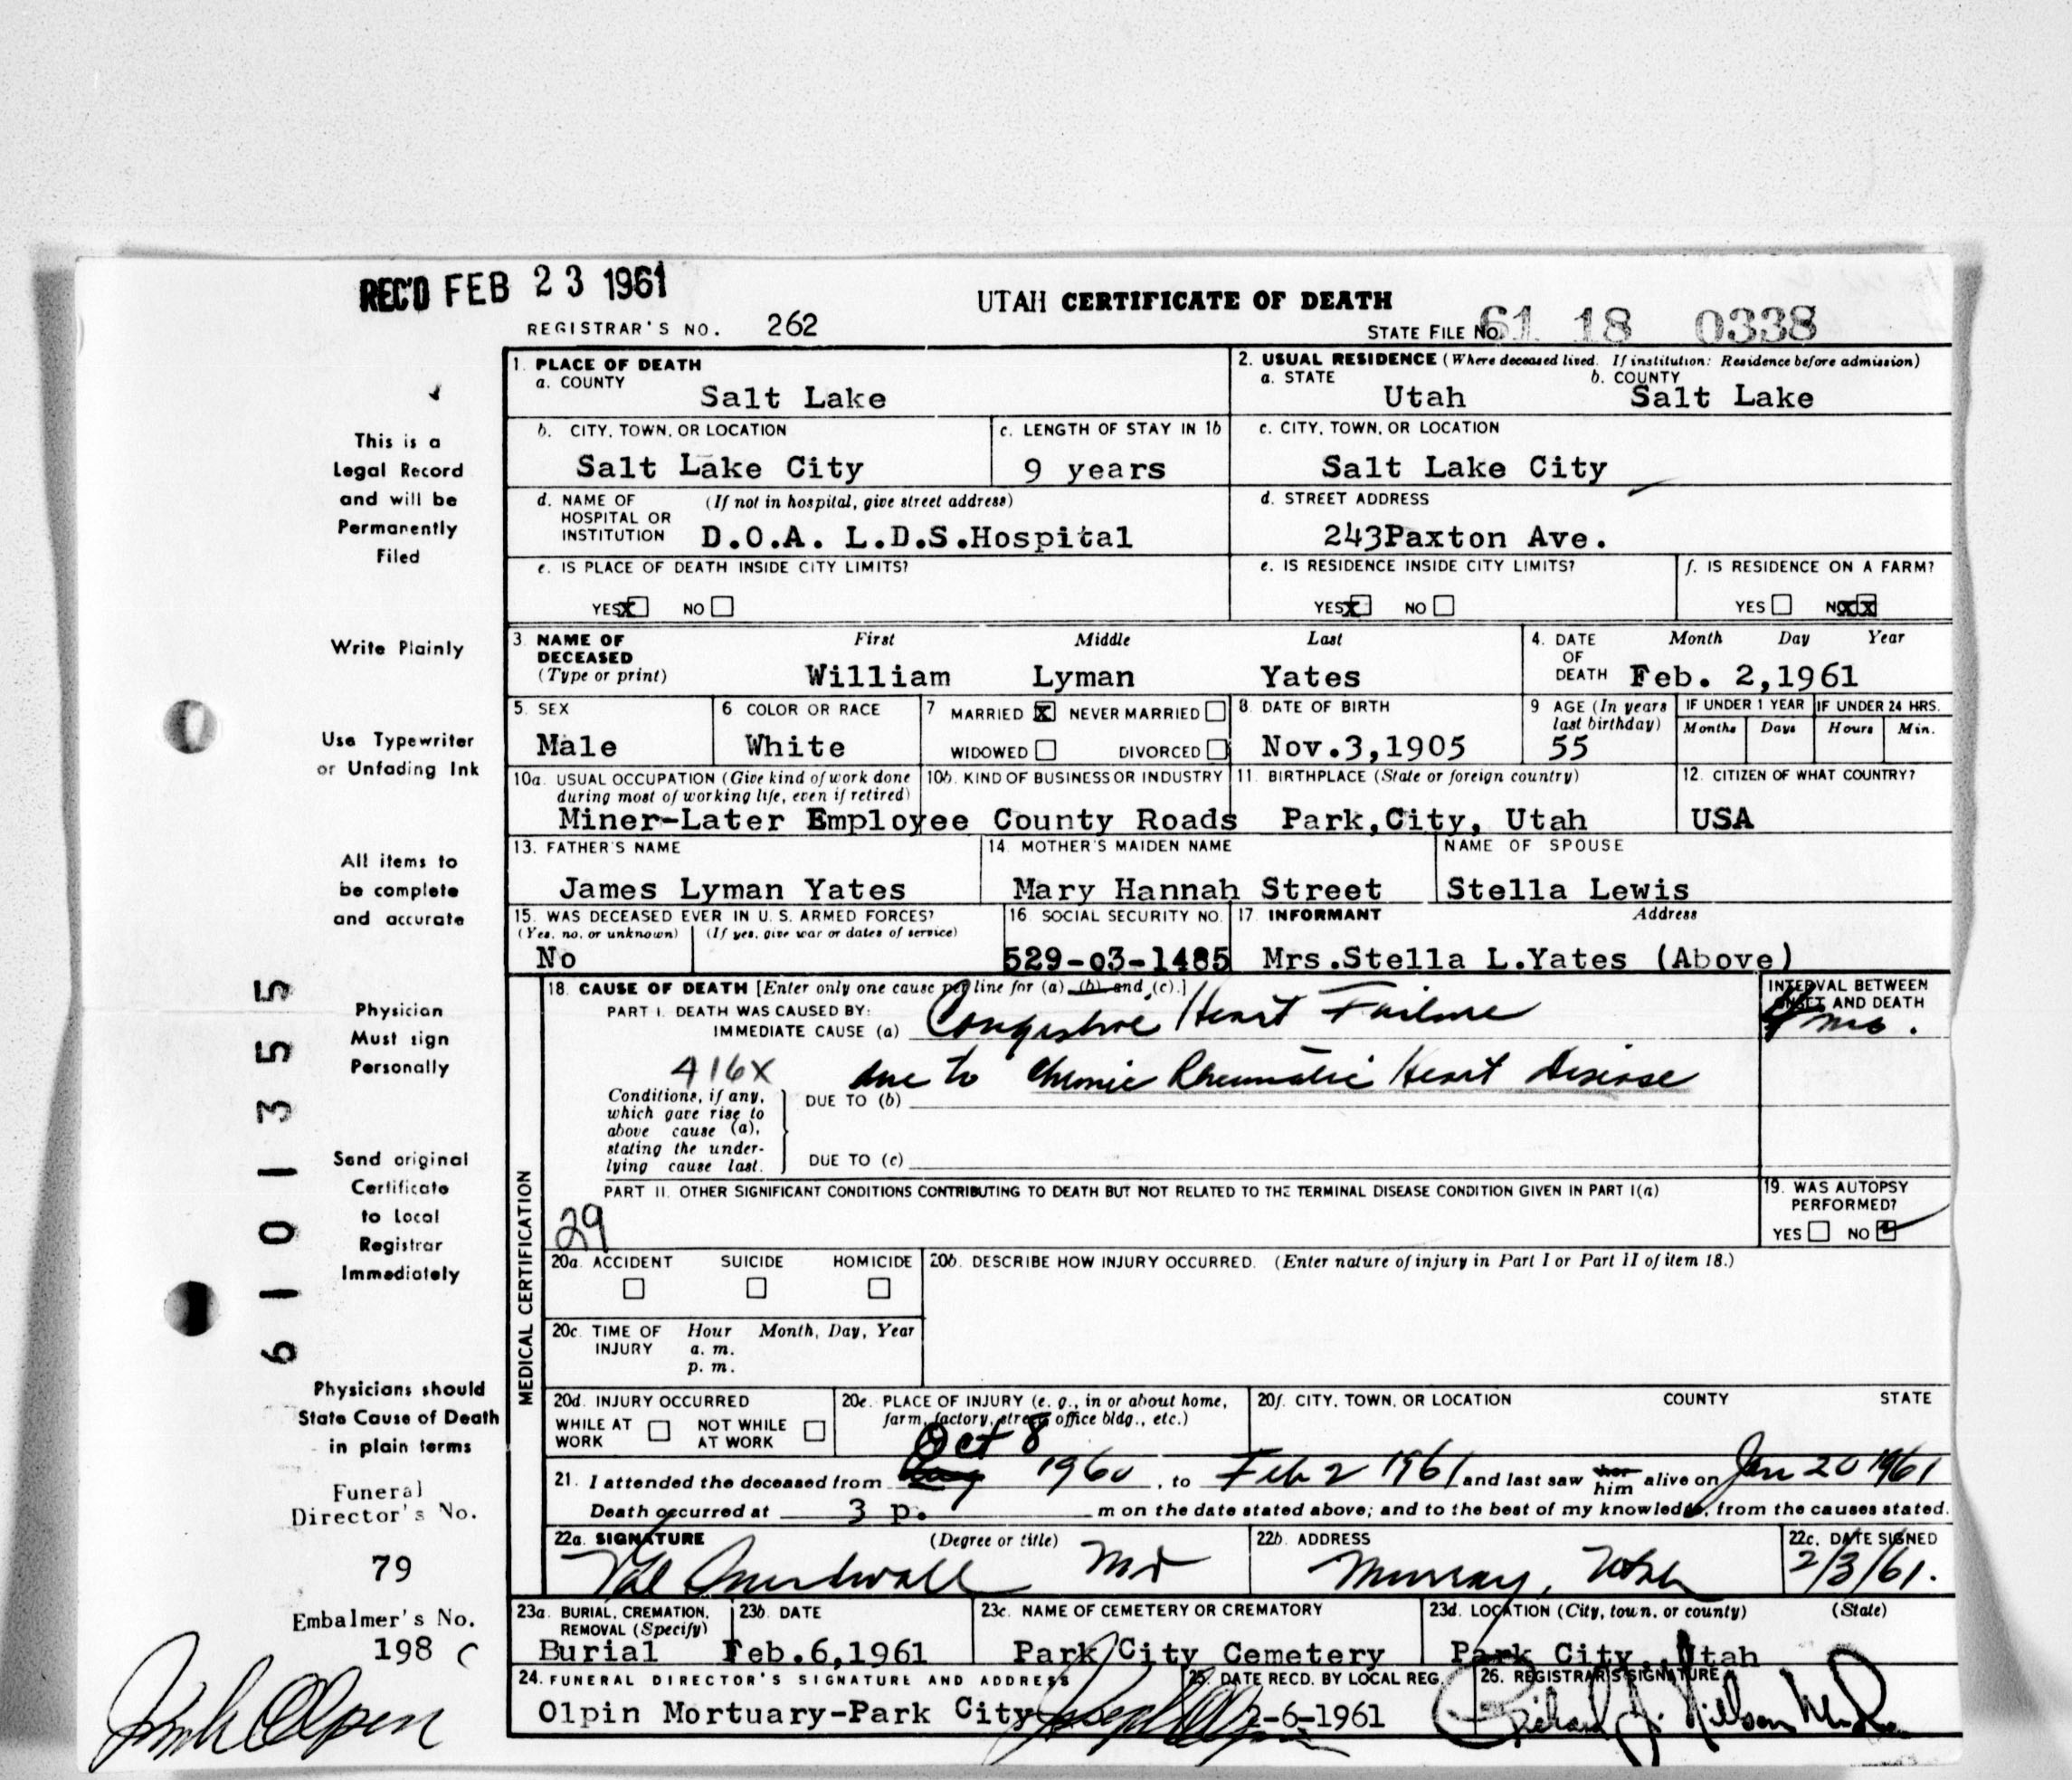 REC'D FEB 23 1961
UTAH CERTIFICATE OF DEATH
REGISTRAR'S NO. 262
STATE FILE NO. 61 18 0338
This is a
Legal Record
and will be
Permanently
Filed
Write Plainly
Use Typewriter
or Unfading Ink
All items to
be complete
and accurate
Physician
Must sign
Personally
Send original
Certificate
to Local
Registrar
Immediately
6101355
Physicians should
State Cause of Death
in plain terms
Funeral
Director's No.
79
Embalmer's No.
198
1. PLACE OF DEATH
a. COUNTY
Salt Lake
2. USUAL RESIDENCE (Where deceased lived. If institution: Residence before admission)
a. STATE b. COUNTY
Utah Salt Lake
b. CITY, TOWN, OR LOCATION
Salt Lake City
c. LENGTH OF STAY IN 1b
9 years
c. CITY, TOWN, OR LOCATION
Salt Lake City
d. NAME OF (If not in hospital, give street address)
HOSPITAL OR
INSTITUTION D.O.A. L.D.S.Hospital
d. STREET ADDRESS
243Paxton Ave.
e. IS PLACE OF DEATH INSIDE CITY LIMITS?
YES X NO
e. IS RESIDENCE INSIDE CITY LIMITS?
YES X NO
f. IS RESIDENCE ON A FARM?
YES NO XX
3 NAME OF First Middle Last
DECEASED
(Type or print) William Lyman Yates
4. DATE Month Day Year
OF
DEATH Feb. 2,1961
5. SEX
Male
6. COLOR OR RACE
White
7 MARRIED X NEVER MARRIED
WIDOWED DIVORCED
8. DATE OF BIRTH
Nov.3,1905
9 AGE (In years
last birthday)
55
IF UNDER 1 YEAR IF UNDER 24 HRS.
Months Days Hours Min.
10a. USUAL OCCUPATION (Give kind of work done
during most of working life, even if retired)
10b. KIND OF BUSINESS OR INDUSTRY
Miner-Later Employee County Roads
11. BIRTHPLACE (State or foreign country)
Park,City, Utah
12. CITIZEN OF WHAT COUNTRY?
USA
13. FATHER'S NAME
James Lyman Yates
14. MOTHER'S MAIDEN NAME
Mary Hannah Street
NAME OF SPOUSE
Stella Lewis
15. WAS DECEASED EVER IN U. S. ARMED FORCES?
(Yes, no, or unknown) (If yes, give war or dates of service)
No
16. SOCIAL SECURITY NO.
529-03-1485
17. INFORMANT Address
Mrs.Stella L.Yates (Above)
MEDICAL CERTIFICATION
18. CAUSE OF DEATH [Enter only one cause per line for (a), (b), and (c).]
PART I. DEATH WAS CAUSED BY:
IMMEDIATE CAUSE (a) Congestive Heart Failure
INTERVAL BETWEEN
ONSET AND DEATH
mo.
416X due to Chronic Rheumatic Heart Disease
Conditions, if any,
which gave rise to
above cause (a),
stating the under-
lying cause last.
DUE TO (b)
DUE TO (c)
PART II. OTHER SIGNIFICANT CONDITIONS CONTRIBUTING TO DEATH BUT NOT RELATED TO THE TERMINAL DISEASE CONDITION GIVEN IN PART I(a)
29
19. WAS AUTOPSY
PERFORMED?
YES NO
20a. ACCIDENT SUICIDE HOMICIDE
20b. DESCRIBE HOW INJURY OCCURRED. (Enter nature of injury in Part I or Part II of item 18.)
20c. TIME OF Hour Month, Day, Year
INJURY a. m.
p. m.
20d. INJURY OCCURRED
WHILE AT WORK NOT WHILE AT WORK
20e. PLACE OF INJURY (e. g., in or about home,
farm, factory, street, office bldg., etc.)
20f. CITY, TOWN, OR LOCATION COUNTY STATE
Oct 8
21. I attended the deceased from Aug 1960, to Feb 2 1961 and last saw her him alive on Jan 20 1961
Death occurred at 3 p. m on the date stated above; and to the best of my knowledge, from the causes stated.
22a. SIGNATURE (Degree or title)
MD
22b. ADDRESS
Murray, Utah
22c. DATE SIGNED
2/3/61.
23a. BURIAL, CREMATION,
REMOVAL (Specify)
Burial
23b. DATE
Feb.6,1961
23c. NAME OF CEMETERY OR CREMATORY
Park City Cemetery
23d. LOCATION (City, town, or county) (State)
Park City, Utah
24. FUNERAL DIRECTOR'S SIGNATURE AND ADDRESS
Olpin Mortuary-Park City
25. DATE RECD. BY LOCAL REG.
2-6-1961
26. REGISTRAR'S SIGNATURE